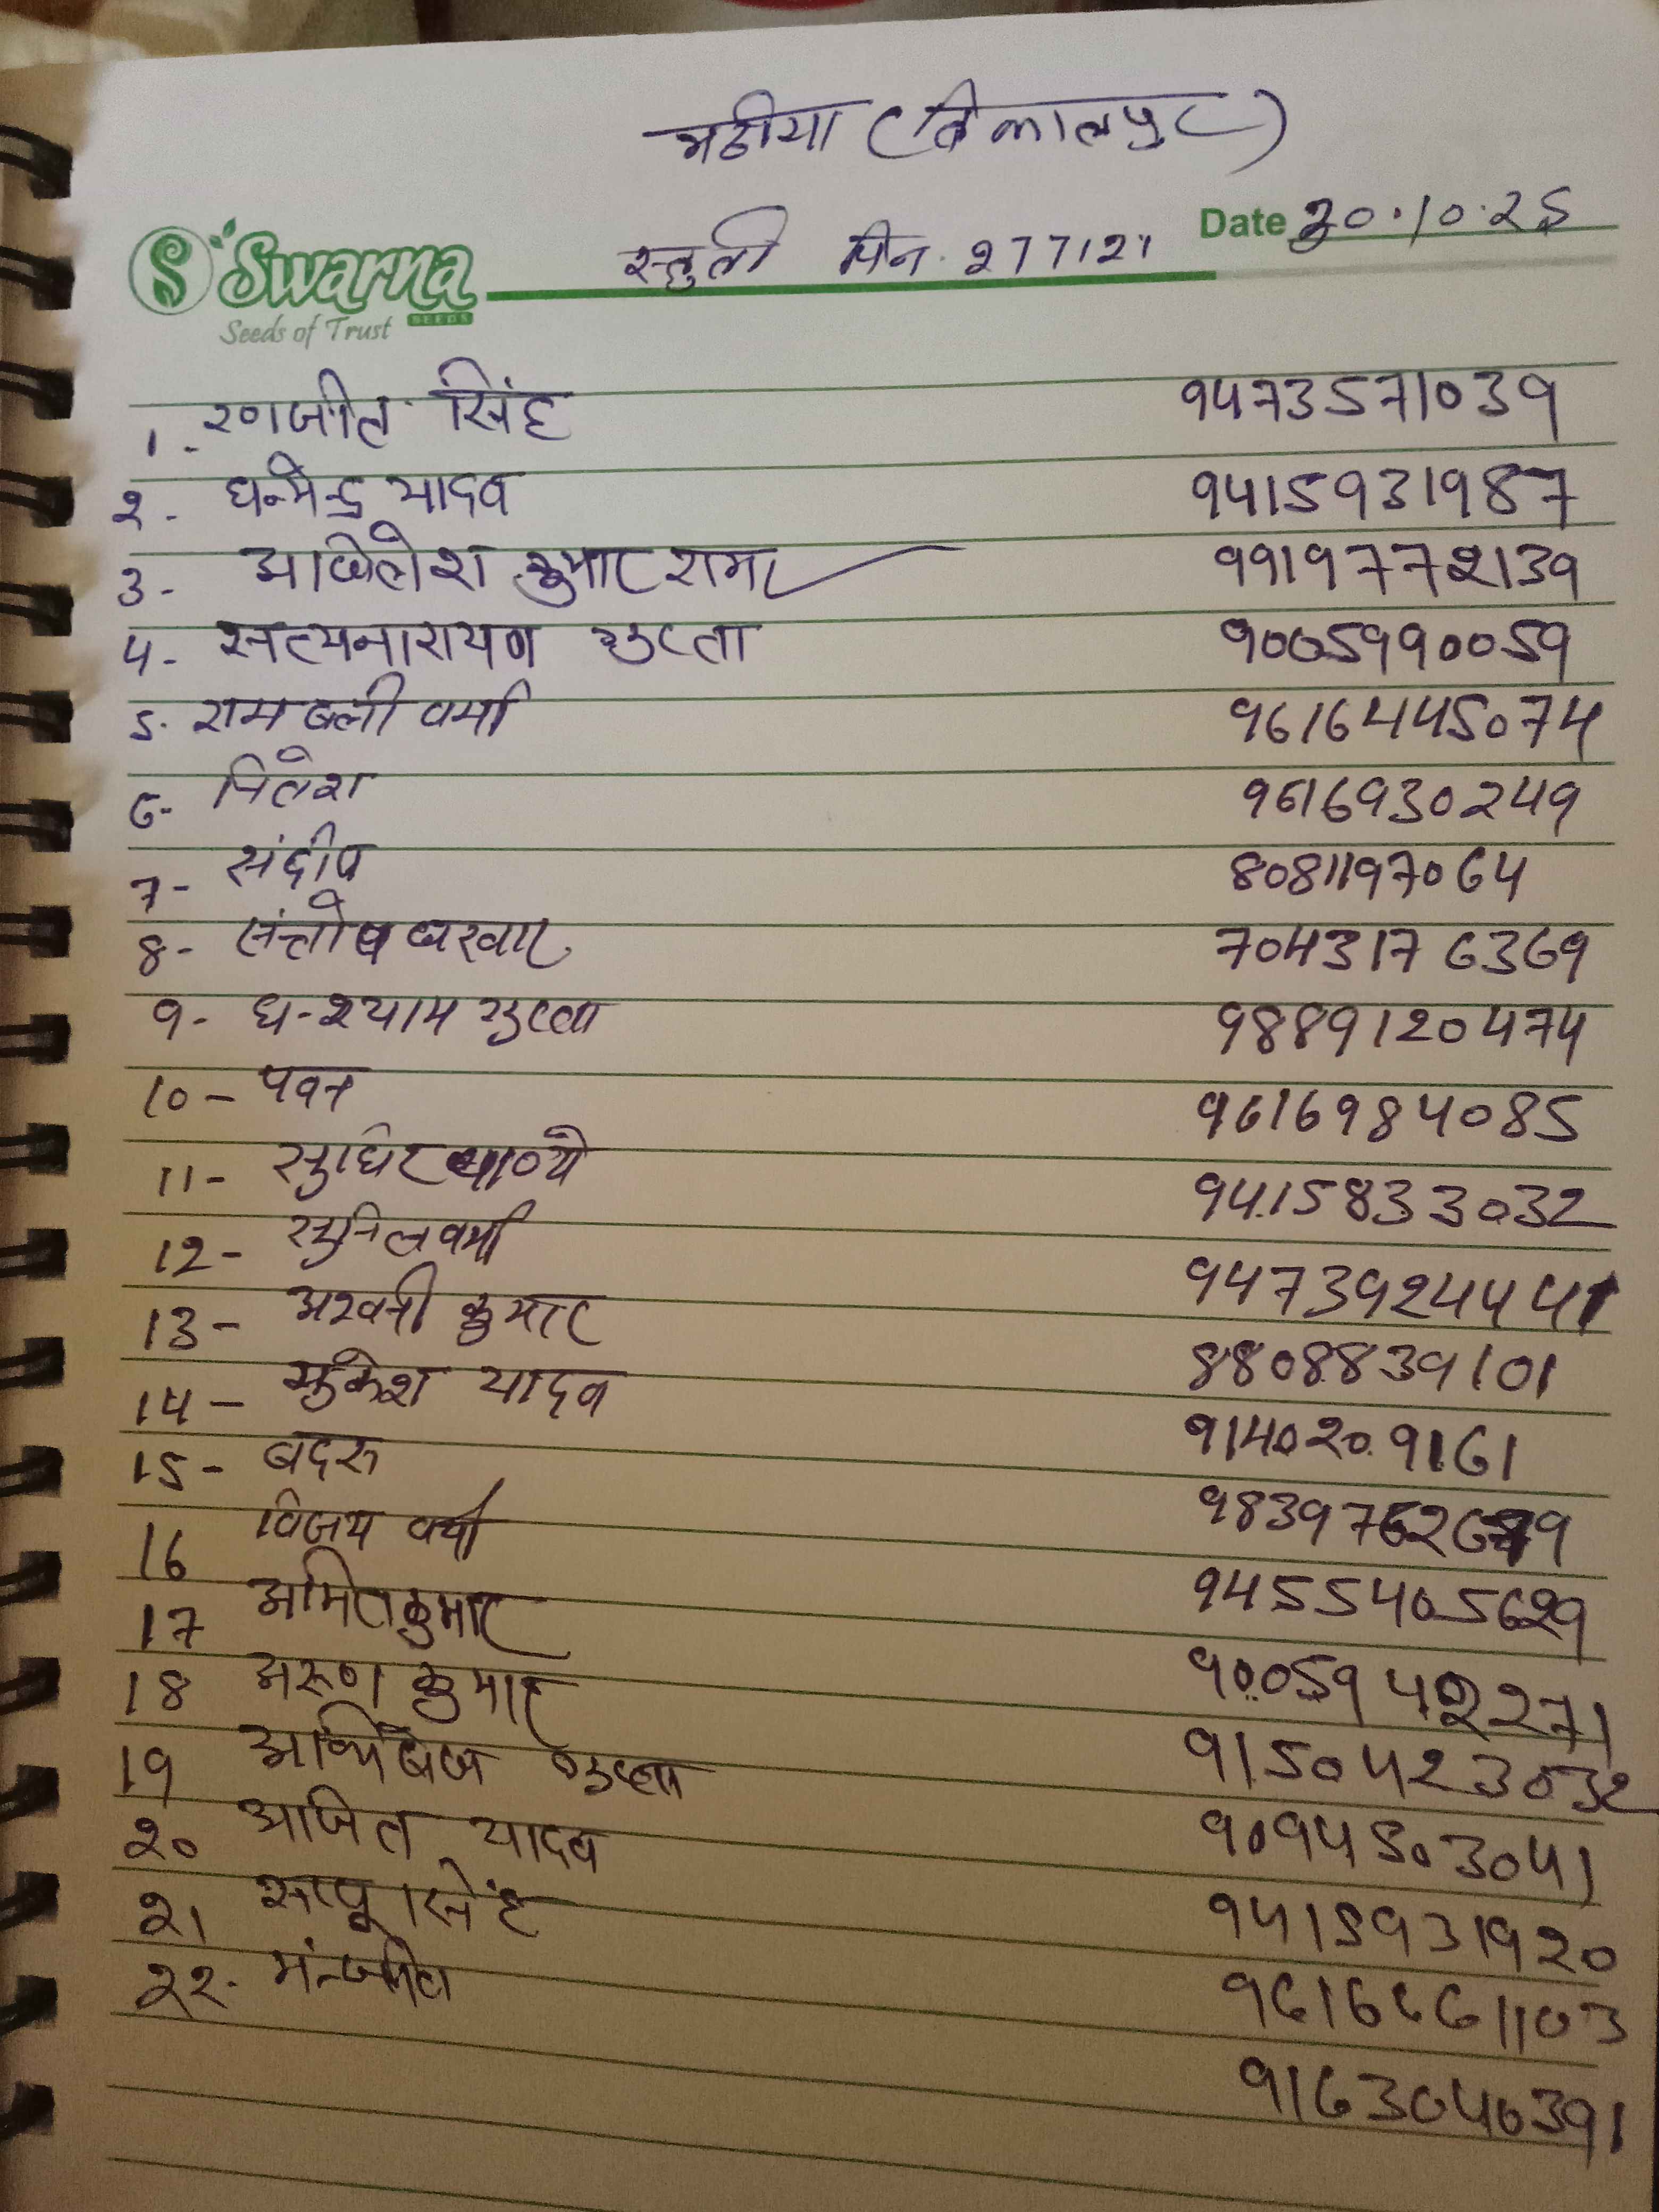 मठीया (त्रिकालपुर)
Swarna
SEEDS
Seeds of Trust
स्तुती पिन. 277121
Date 30.10.25
1. रणजीत सिंह 9473571039
2- धन्मेन्द्र यादव 9415931987
3- अखिलेश कुमार राम 9919772139
4- सत्यनारायण गुप्ता 9005990059
5. राम बली वर्मा 9616445074
6- नितेश 9616930249
7- संदीप 8081197064
8- संत्तोष खरवार 7043176369
9- घन्श्याम गुप्ता 9889120474
10- पवन 9616984085
11- सुधिर 9415833032
12- सुनिल वर्मा 9473924441
13- अश्वनी कुमार 8808839101
14- मुकेश यादव 9140209161
15- बदरू
16 विजय वर्मा 9455405629
17 अमित कुमार 9005942271
18 अरुण कुमार 9150423032
19 गुप्ता 9094503041
20 अजित यादव 9415931920
21 सिंह 9616661103
22- मंन्जीत 9163040391